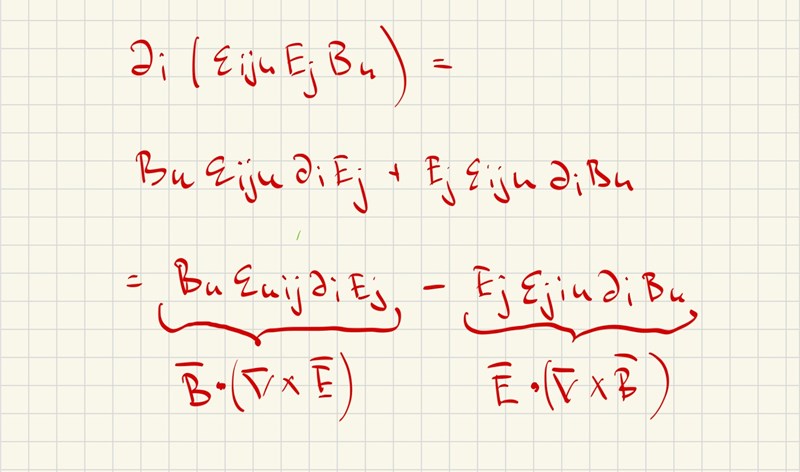 ∂i (εijk Ej Bk) =
Bk εijk ∂i Ej + Ej εijk ∂i Bk
= Bk εkij ∂i Ej − Ej εjik ∂i Bk
B̅·(∇̅ × E̅) E̅·(∇̅ × B̅)